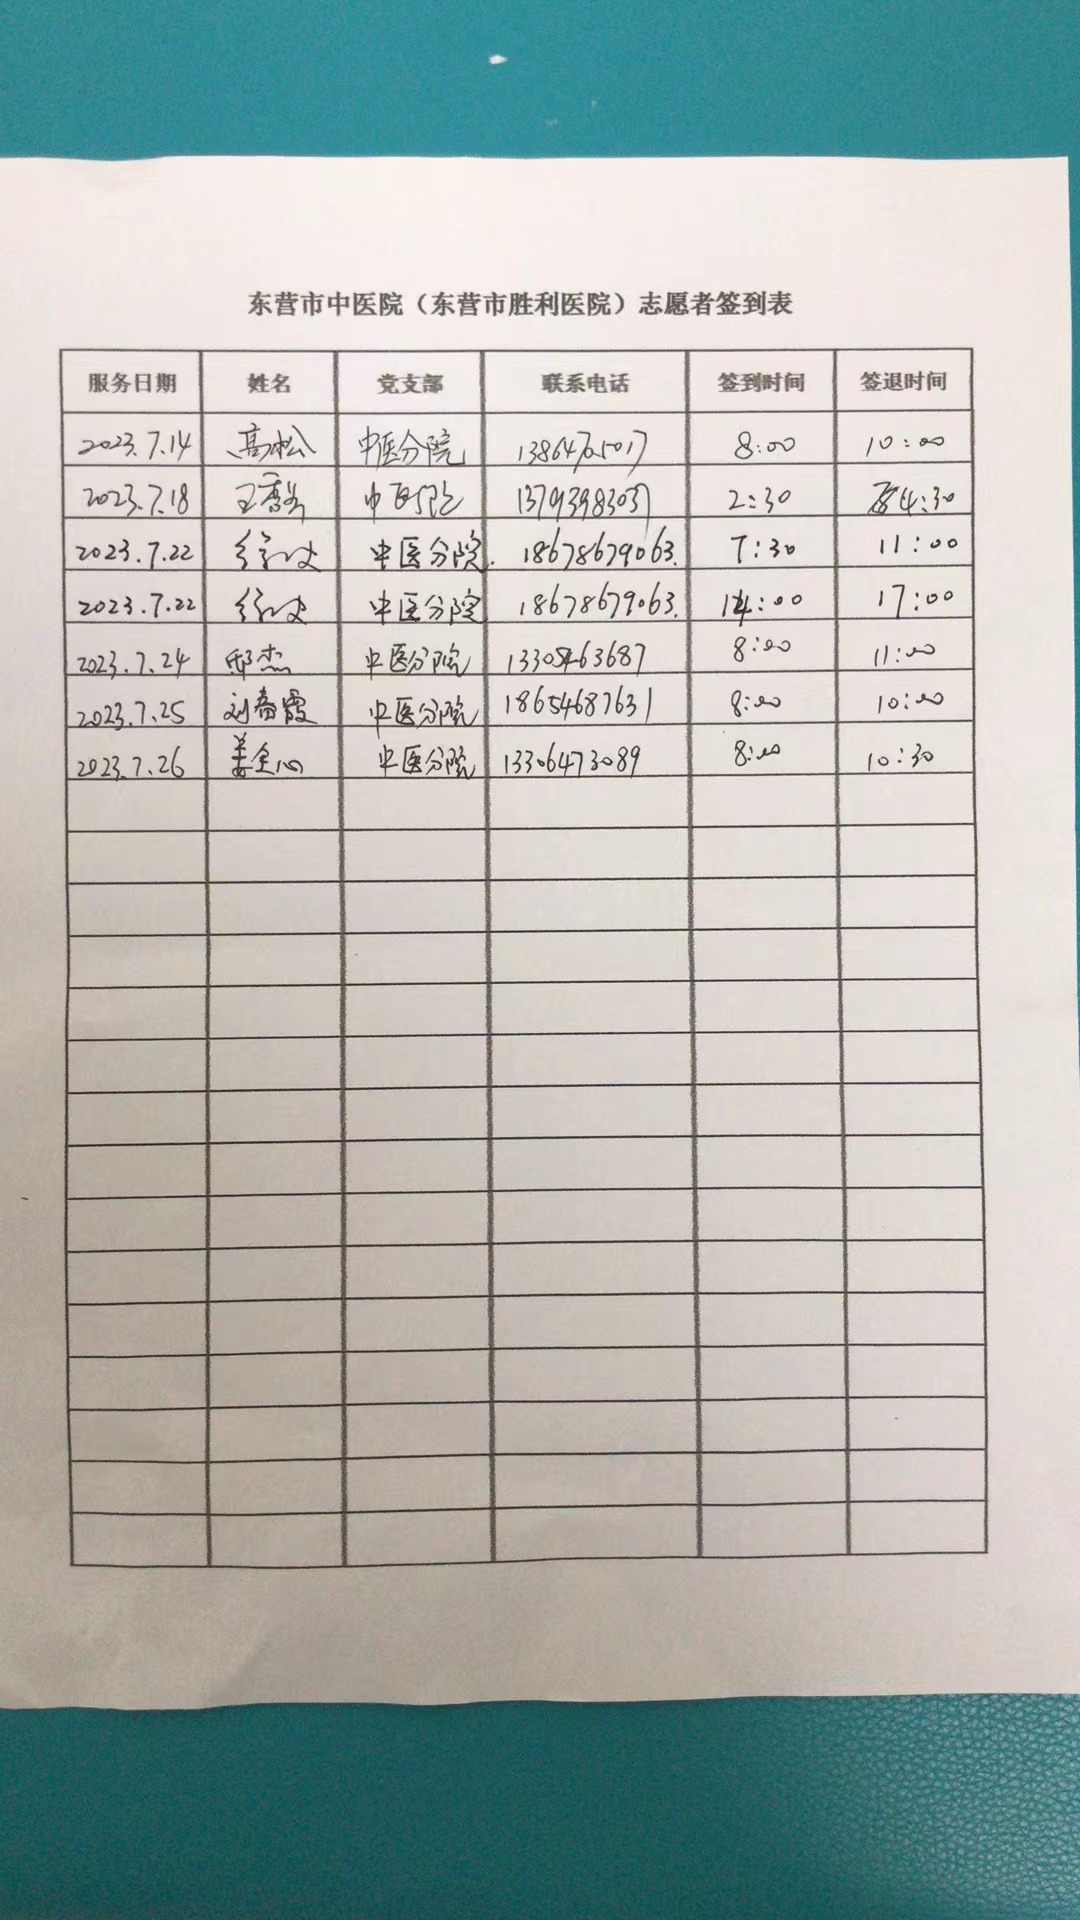 东营市中医院（东营市胜利医院）志愿者签到表
服务日期 姓名 党支部 联系电话 签到时间 签退时间
2023.7.14 高松 中医分院 13864705017 8:00 10:00
2023.7.18 王 中医分院 13793983037 2:30 4:30
2023.7.22 中医分院 18678679063. 7:30 11:00
2023.7.22 中医分院 18678679063. 14:00 17:00
2023.7.24 邸杰 中医分院 13305463687 8:00 11:00
2023.7.25 刘春霞 中医分院 18654687631 8:00 10:00
2023.7.26 姜全心 中医分院 13306473089 8:00 10:30